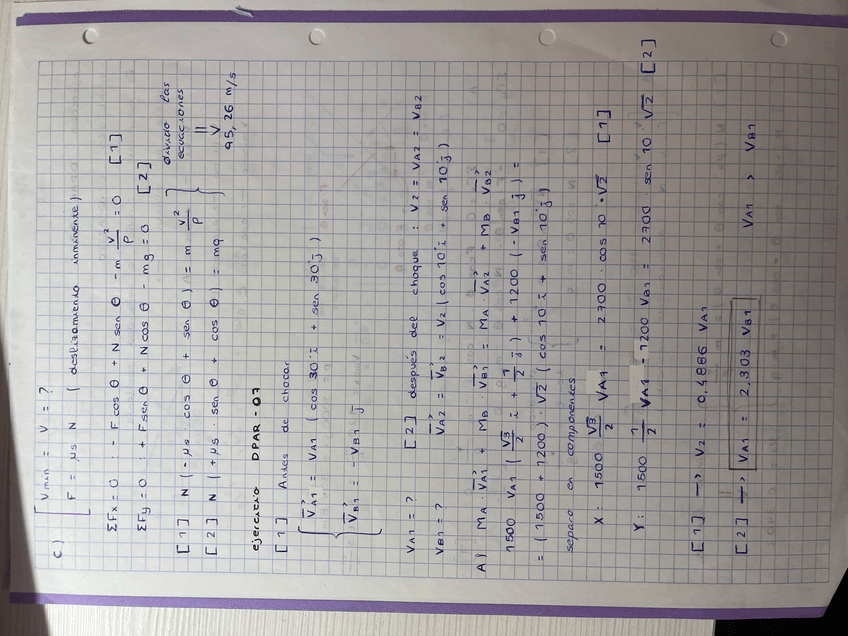 c) [ Vmin = V = ?
F = μs N ( deslizamiento inminente)
ΣFx = 0 : - F cos θ + N sen θ - m v²/ρ = 0 [1]
ΣFy = 0 : + F sen θ + N cos θ - mg = 0 [2]
[1] N ( - μs cos θ + sen θ ) = m v²/ρ } divido las ecuaciones
[2] N ( + μs · sen θ + cos θ ) = mg } ⇒ 95, 26 m/s
ejercicio DPAR - 07
[1] Antes de chocar
{ V⃗A1 = VA1 ( cos 30° i + sen 30° j )
V⃗B1 = - VB1 j
VA1 = ? [2] después del choque : V2 = VA2 = VB2
VB1 = ? V⃗A2 = V⃗B2 = V2 ( cos 10° i + sen 10° j )
A) MA · V⃗A1 + MB · V⃗B1 = MA · V⃗A2 + MB · V⃗B2
1500 VA1 ( √3/2 i + 1/2 j ) + 1200 ( - VB1 j ) =
= ( 1500 + 1200 ) · √2 ( cos 10° i + sen 10° j )
separo en componentes
X : 1500 √3/2 VA1 = 2700 · cos 10 · √2 [1]
Y : 1500 1/2 VA1 - 1200 VB1 = 2700 sen 10 √2 [2]
[1] → V2 = 0,4886 VA1
[2] → VA1 = 2,303 VB1 VA1 > VB1